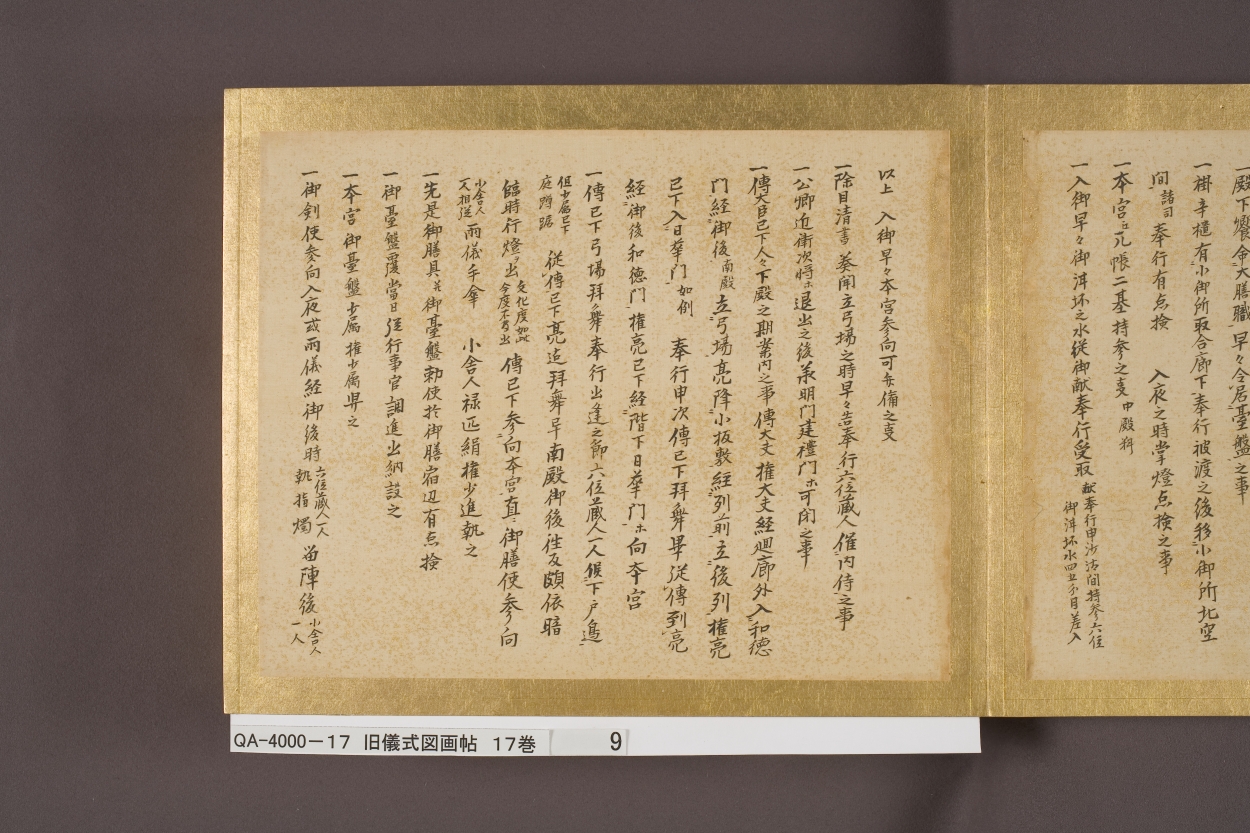 殿下饗令大膳職早々令居臺盤之事
一褂辛櫃有小御所取合廊下奉行被渡之後移小御所北空
間諸司奉行有点検 入夜之時掌燈点検之事
一本宮几帳二基持参之事中殿料
一入御早々御洱坏之水従御献奉行受取献奉行申沙汰間持参六位
御洱坏水四五分目差入
以上 入御早々本宮参向可与備之事
一除目清書奏聞立弓場之時早々告奉行六位蔵人催内侍之事
一公卿近衛次将ホ退出之後承明門建禮門ホ可閉之事
一傳大臣已下人々下殿之期業内之事傳大夫権大夫経廻廊外入和徳
門経御後南殿立弓場亮降小板敷経列前立後列権亮
已下入日華門如例 奉行申次傳已下拜舞畢従傳到亮
経御後和徳門権亮已下経階下日華門ホ向本宮
一傳已下弓場拜舞奉行出逢之節六位蔵人一人候下戸邊
但少属已下
庭蹲踞 従傳已下亮迄拜舞早南殿御後徃反頗依暗
臨時行燈ヲ出文化度如此
今度不可出 傳已下参向本宮直ニ御膳使参向
小舎人
又相従雨儀手傘 小舎人禄疋絹権少進執之
一先是御膳具并御臺盤勅使於御膳宿辺有点検
一御臺盤覆當日従行事官調進出納設之
一本宮御臺盤少属権少属舁之
一御剣使参向入夜或雨儀経御後時六位蔵人一人
執指燭 留陣後小舎人
一人
QA-4000-17 旧儀式図画帖 17巻 9